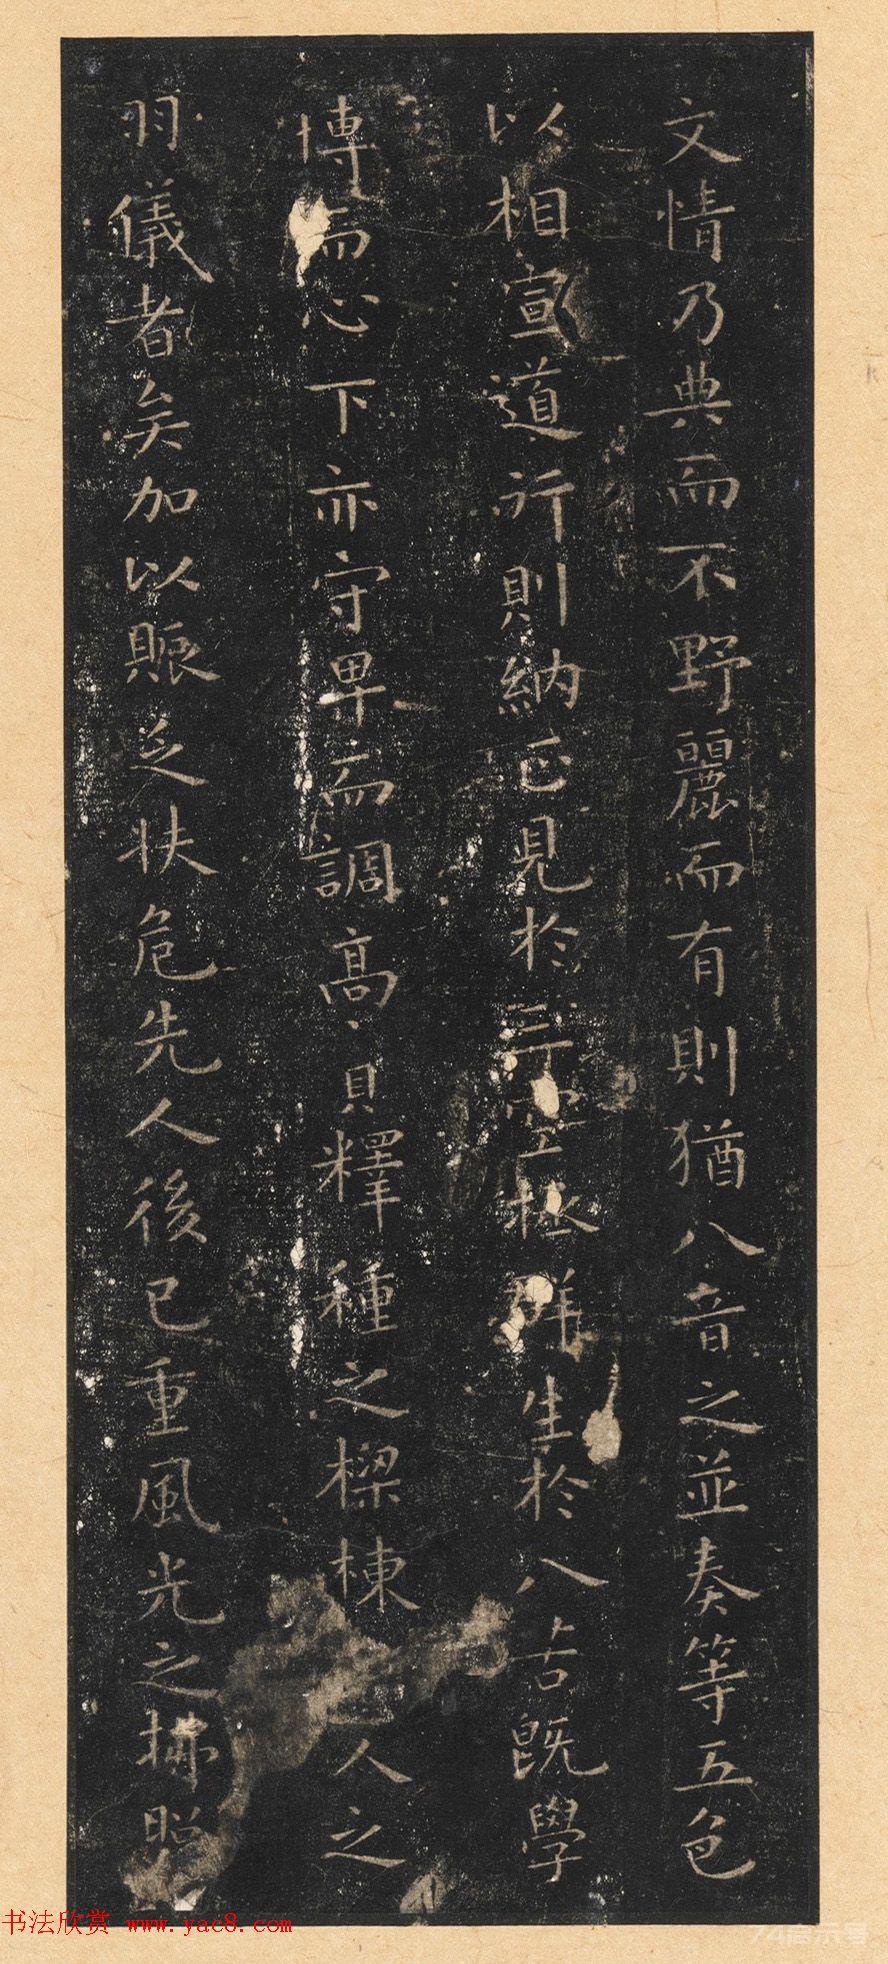 文情乃典而不野麗而有則猶八音之並奏等五色
以相宣道行則納正見於三空拯群生於八苦既學
博而心下亦守卑而調高寔釋種之樑棟人之
羽儀者矣加以賑乏扶危先人後己重風光之拂照
书法欣赏 www.yac8.com